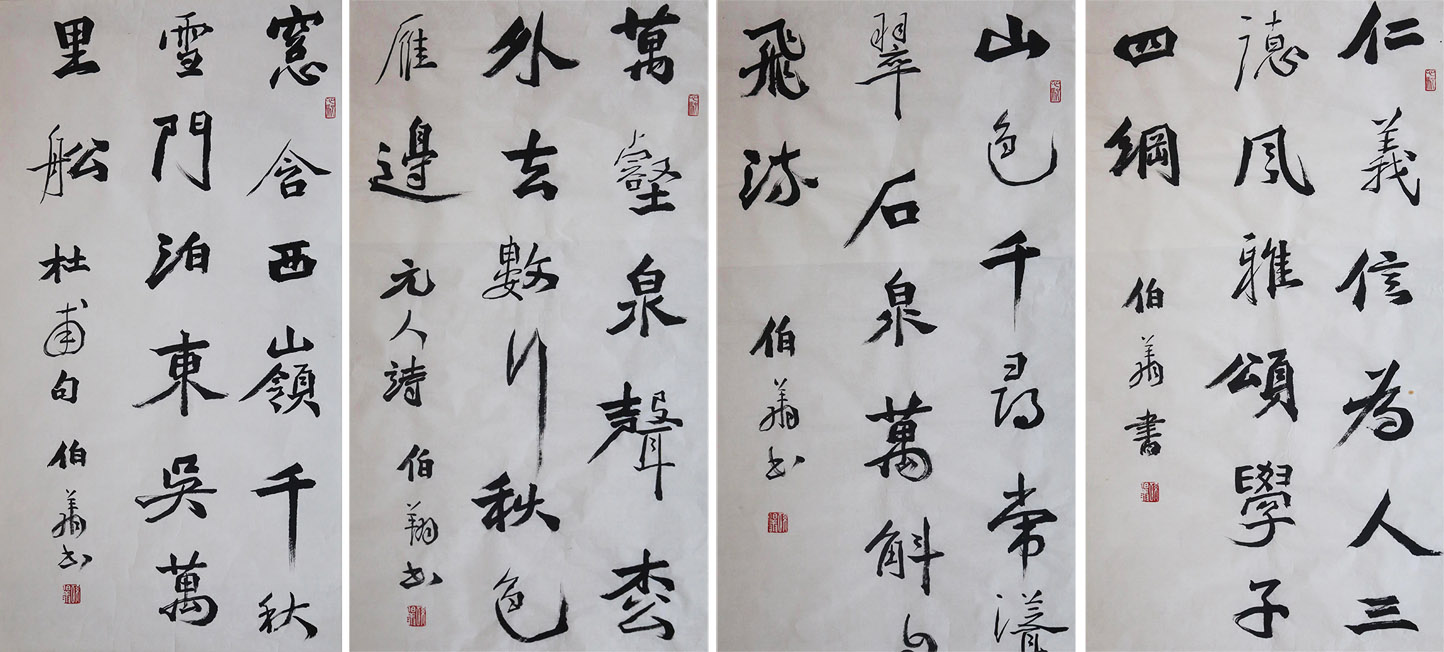 仁義信為人三
德風雅頌學子
四綱 伯翔書
山色千尋常溢
翠石泉萬斛自
飛流 伯翔书
萬壑泉聲枩
外去數行秋色
雁邊 元人詩 伯翔书
窓含西山嶺千秋
雪門泊東吳萬
里舩 杜甫句 伯翔书